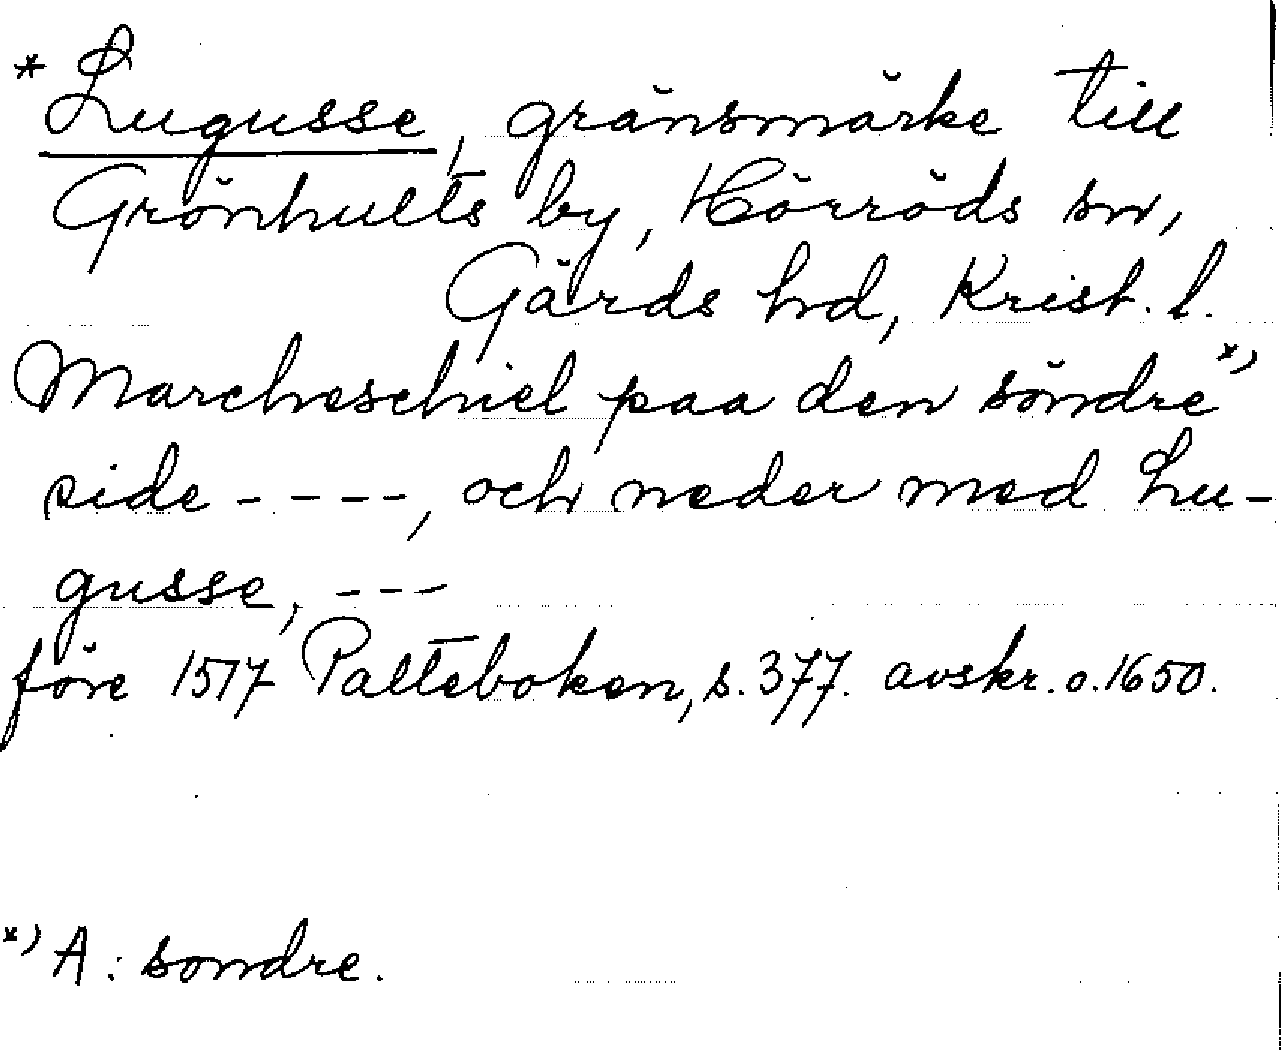 *Lugusse, gränsmärke till
Grönhults by, Hörröds sn,
Gärds hd, Krist. l.
Marcheschiel paa den söndre*)
side ----, och neder med Lu-
gusse, ---
före 1517 Palteboken, s. 377. avskr. o. 1650.
*) A: sondre.